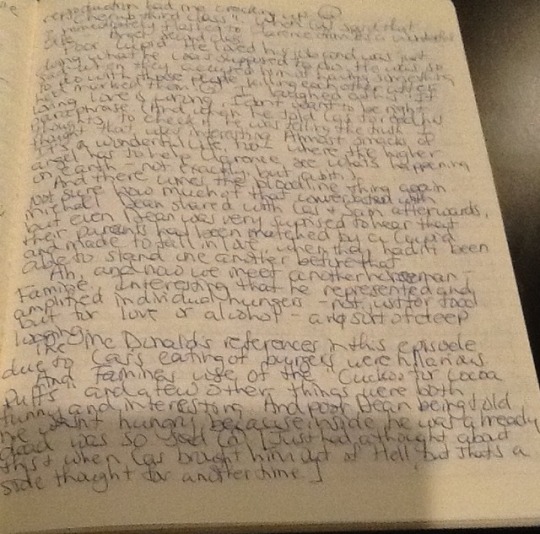 reproduction had me cracking up
cherub third class" when Cas said that
I immediately flashed to Clarence
angel second class
Poor Cupid. He loved his job and was just
doing what he was supposed to do. He was so
sad when they accused him
to do with those people killing each other
had marked them. I laughed out
being love is
paraphrase). And when he told Cas to read his
thoughts, to check if he was telling the truth I
thought that was interesting. Almost smacks of
It's a wonderful Life, too, where the higher
angel has to help Clarence see what's happening
on earth - not exactly, but a bit.
And there comes the bloodline thing again
not sure how much of that
Michael Dean shared with Cas & Sam afterwards,
but even Dean was very surprised to hear that
their parents had been matched by a Cupid
and made to fall in love when they hadn't been
able to stand one another before that.
Ah, and now we meet another horseman:
Famine. Interesting that he represented and
amplified individual hungers - not just for food
but for love or alcohol - any sort of deep
longing.
The McDonald's references in this episode
due to Cas's eating of burgers were hilarious
And Famine's use of the "Cuckoo for Cocoa
Puffs" and a few other things were both
funny and interesting. And poor Dean being told
he wasn't hungry because inside he was already
dead was so sad [I just had a thought about
this + when Cas brought him out of Hell, but that's a
side thought for another time]